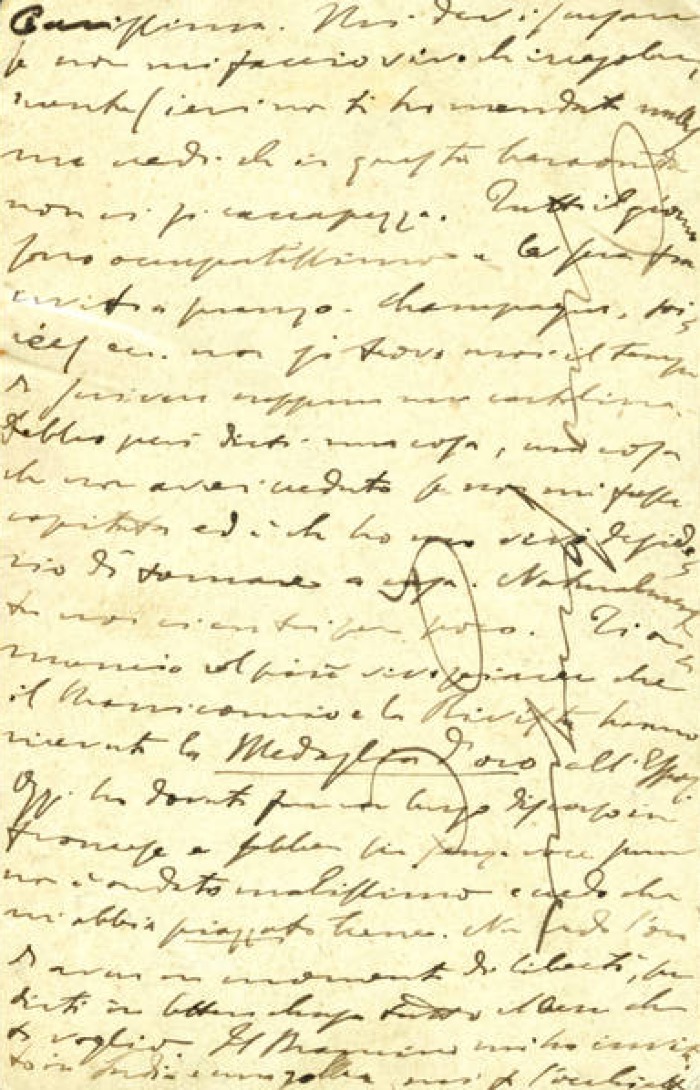 Carissima. Non devi
se non mi faccio vivo che irregolar
mente (ieri non ti ho mandato nulla
ma vedi che in questa baraonda
non ci si raccapezza. Tutto il giorno
sono occupatissimo e la sera tra
inviti a pranzo, champagne,
ecc. non si trova mai il tempo
di scrivere neppure una cartolina.
Debbo però dirti una cosa, una cosa
che non avrei creduto se non mi fosse
capitata ed è che ho un vero deside
rio di tornare a casa. Naturalmen
te non
nuncio col più vivo piacere che
il Manicomio e la Rivista hanno
ricevuto la Medaglia d'oro all'Espos.
Oggi ho dovuto fare un lungo discorso in
francese e sebbene sia senza voce pure
non è andato malissimo e credo che
mi abbia piazzato bene. Non vedo l'ora
di avere un momento di libertà, per
dirti in lettera lunga tutto il bene che
ti voglio. Il